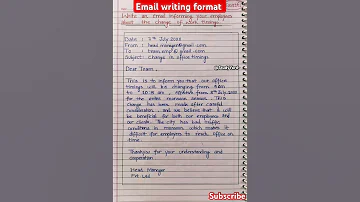 Email writing format
Write an email informing your employees
about the change of work timings.
Date : 3rd July 2023
From : head.manager@gmail.com
To : team.emp@gmail.com
Subject: Change in office timings
Dear Team,
This is to inform you that our office
timings will be changing from 9 am
to 10:15 am, effective from 8th July, 2023
for the entire monsoon season. This
change has been made after careful
consideration and we believe that it will
be beneficial for both our employees and
our clients. The city has bad traffic
conditions in monsoon which makes it
difficult for employees to reach office on
time.
Thankyou for your understanding and
cooperation.
Head Manager
Pvt Ltd
Subscribe